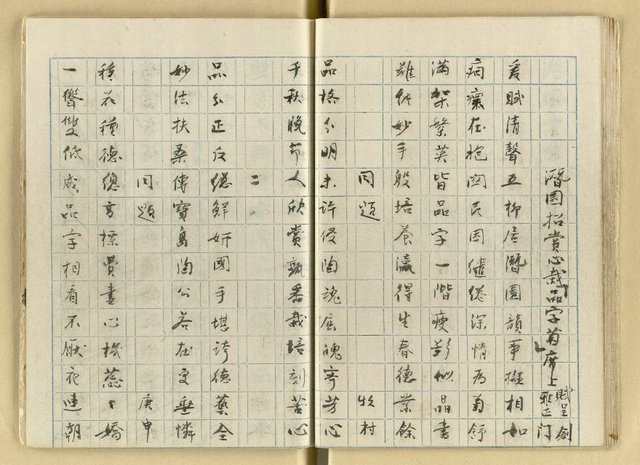 醫園招賞心栽品字菊席上賦呈劍
雅正 門
賦清聲五柳居醫園韻事擬相如
病癢在抱關民困繾綣深情為菊舒
滿架繁英皆品字一階瘦影似晶書
難使妙手殷培養瀛得生春德業餘
同題 牧村
品格分明未許侵陶魂屈魄寄芳心
千秋晚節人欣賞栽培刻苦心
二
品分正反總鮮妍國手堪誇德藝全
妙法扶桑傳寶島陶公若在定垂憐
同題 庚申
種花種德總高標費盡心機蕊蕊嬌
一幹雙低成品字相看不厭花連朝